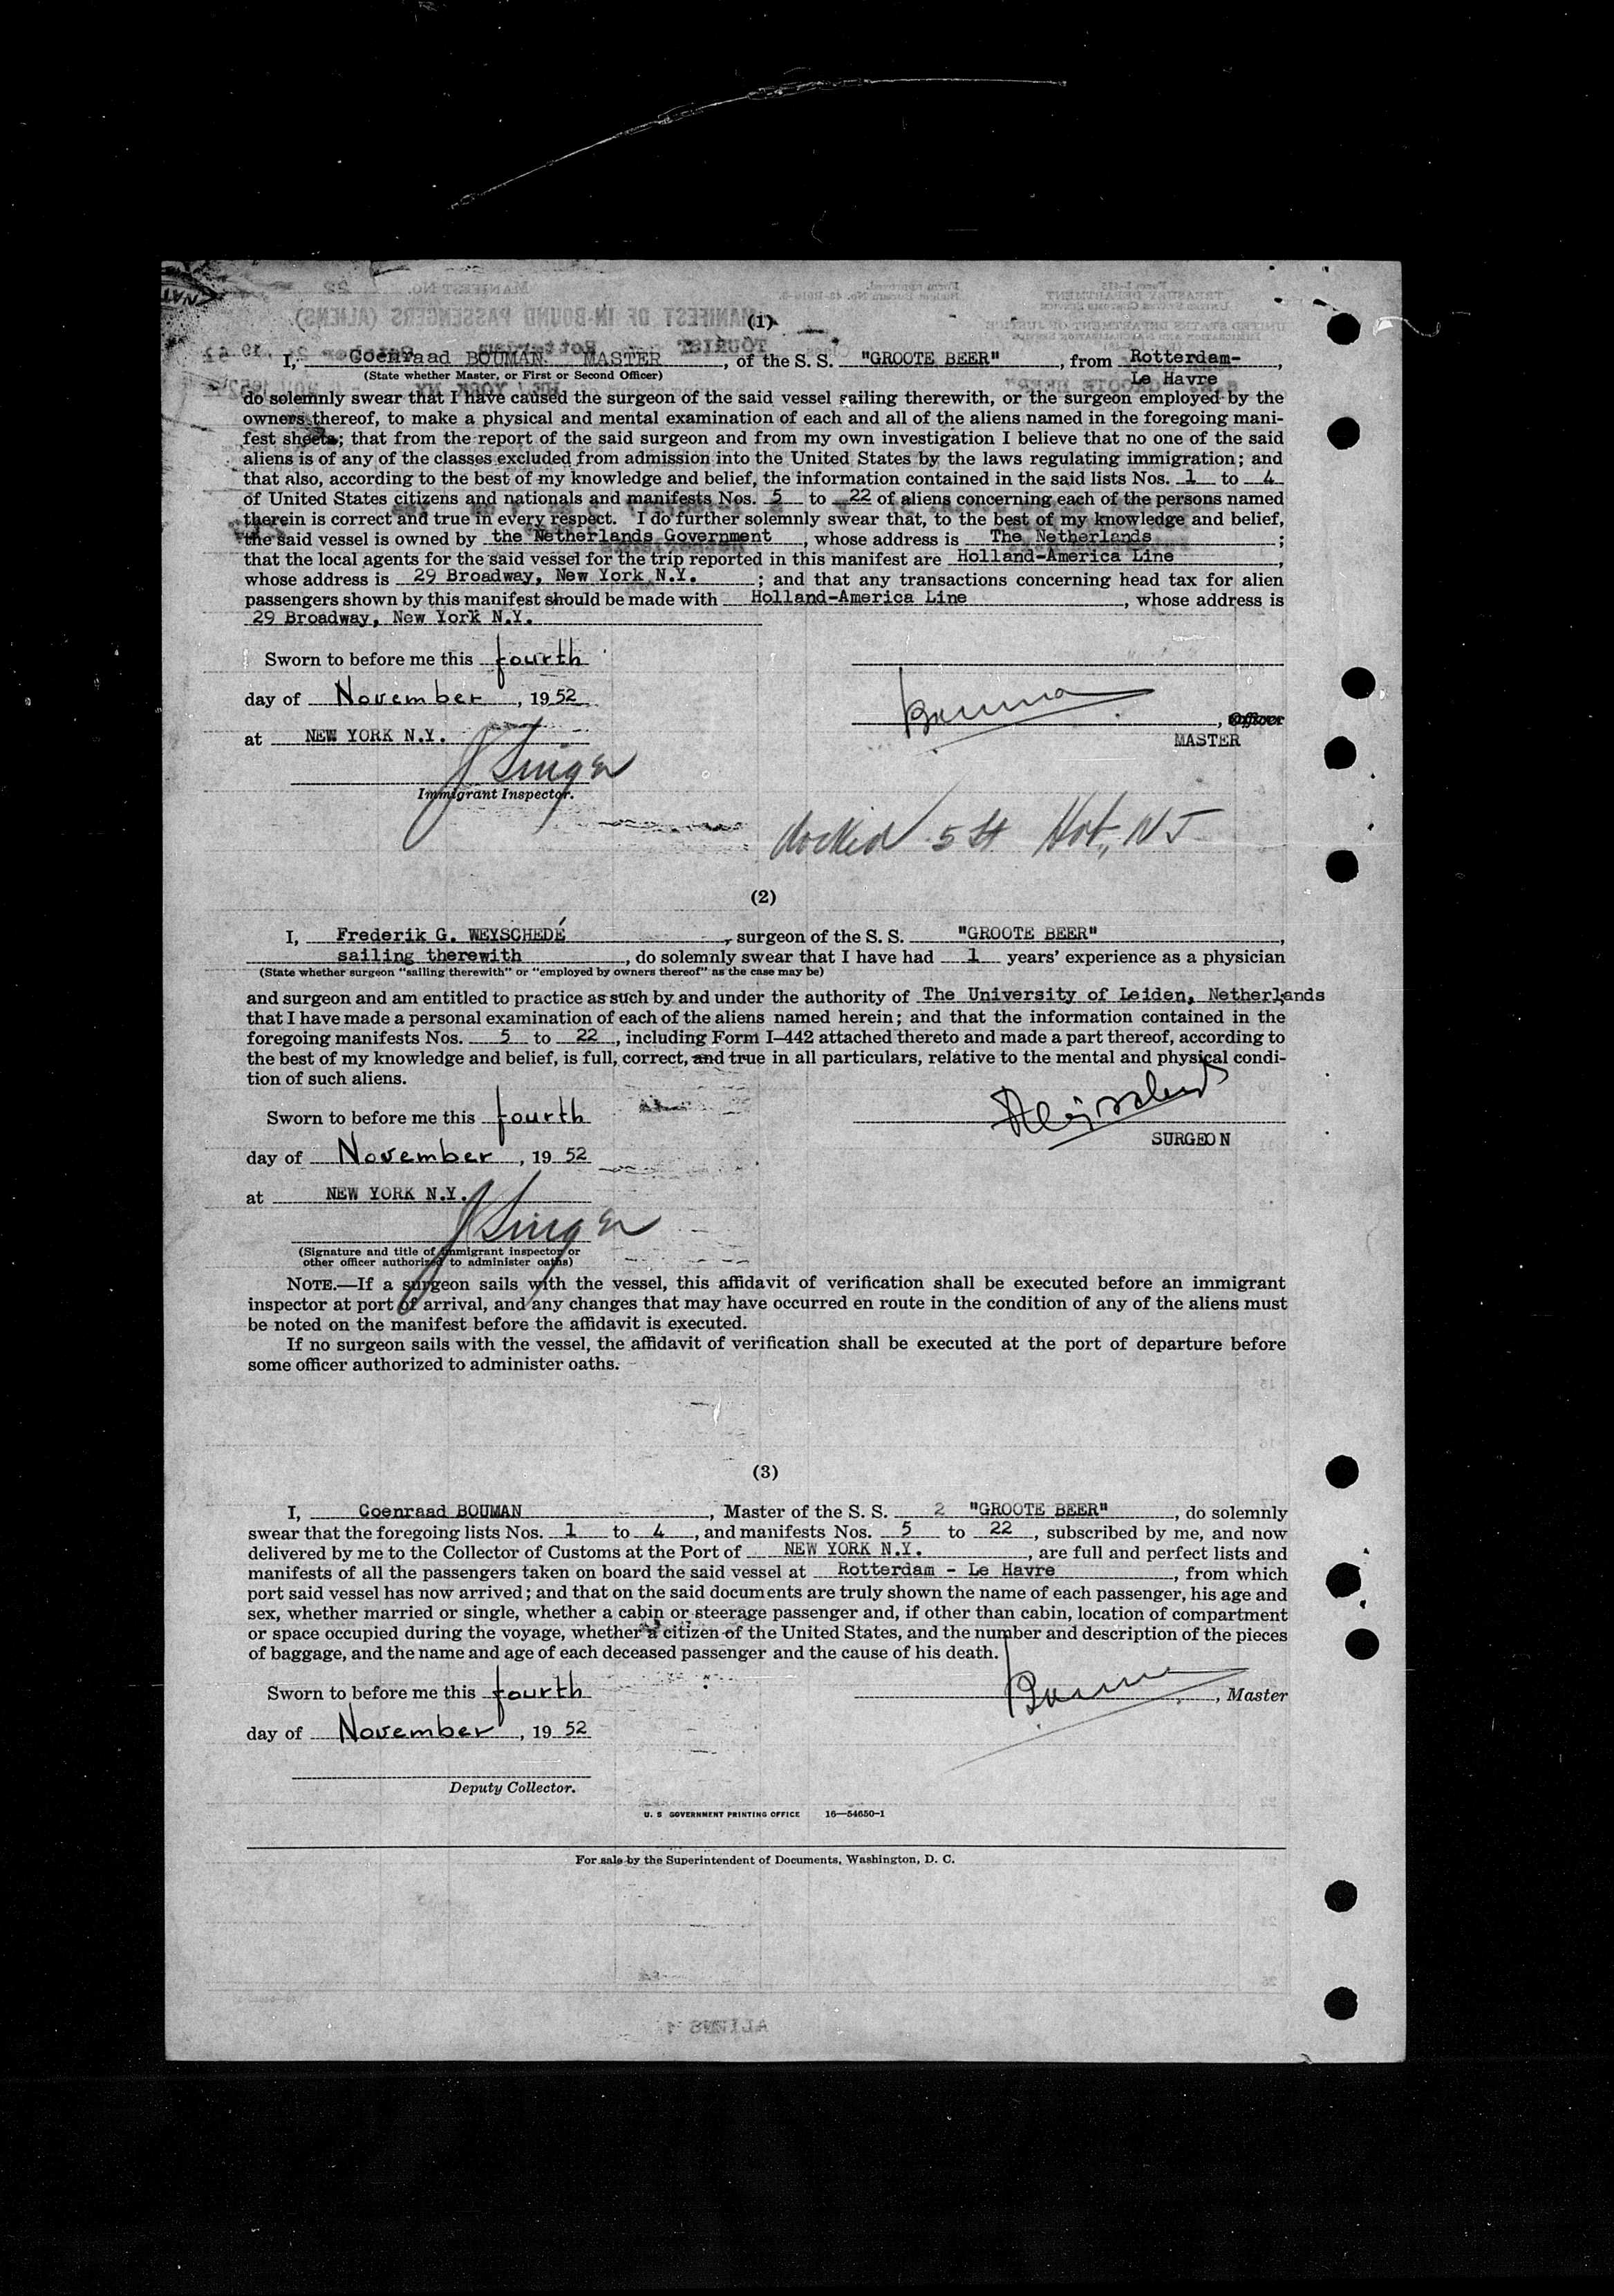 (1)
I, Coenraad BOUMAN MASTER, of the S. S. "GROOTE BEER", from Rotterdam-
(State whether Master, or First or Second Officer) Le Havre
do solemnly swear that I have caused the surgeon of the said vessel sailing therewith, or the surgeon employed by the
owners thereof, to make a physical and mental examination of each and all of the aliens named in the foregoing mani-
fest sheets; that from the report of the said surgeon and from my own investigation I believe that no one of the said
aliens is of any of the classes excluded from admission into the United States by the laws regulating immigration; and
that also, according to the best of my knowledge and belief, the information contained in the said lists Nos. 1 to 4
of United States citizens and nationals and manifests Nos. 5 to 22 of aliens concerning each of the persons named
therein is correct and true in every respect. I do further solemnly swear that, to the best of my knowledge and belief,
the said vessel is owned by the Netherlands Government, whose address is The Netherlands;
that the local agents for the said vessel for the trip reported in this manifest are Holland-America Line,
whose address is 29 Broadway, New York N.Y.; and that any transactions concerning head tax for alien
passengers shown by this manifest should be made with Holland-America Line, whose address is
29 Broadway, New York N.Y.
Sworn to before me this fourth
day of November, 1952
Bouman, Officer
at NEW YORK N.Y. MASTER
J Singer
Immigrant Inspector.
docked 5 St Hob, NJ
(2)
I, Frederik G. WEYSCHEDÉ, surgeon of the S. S. "GROOTE BEER",
sailing therewith, do solemnly swear that I have had 1 years' experience as a physician
(State whether surgeon "sailing therewith" or "employed by owners thereof" as the case may be)
and surgeon and am entitled to practice as such by and under the authority of The University of Leiden, Netherlands
that I have made a personal examination of each of the aliens named herein; and that the information contained in the
foregoing manifests Nos. 5 to 22, including Form I-442 attached thereto and made a part thereof, according to
the best of my knowledge and belief, is full, correct, and true in all particulars, relative to the mental and physical condi-
tion of such aliens.
Sworn to before me this fourth
SURGEON
day of November, 1952
at NEW YORK N.Y.
J Singer
(Signature and title of immigrant inspector or
other officer authorized to administer oaths)
NOTE.—If a surgeon sails with the vessel, this affidavit of verification shall be executed before an immigrant
inspector at port of arrival, and any changes that may have occurred en route in the condition of any of the aliens must
be noted on the manifest before the affidavit is executed.
If no surgeon sails with the vessel, the affidavit of verification shall be executed at the port of departure before
some officer authorized to administer oaths.
(3)
I, Coenraad BOUMAN, Master of the S. S. 2 "GROOTE BEER", do solemnly
swear that the foregoing lists Nos. 1 to 4, and manifests Nos. 5 to 22, subscribed by me, and now
delivered by me to the Collector of Customs at the Port of NEW YORK N.Y., are full and perfect lists and
manifests of all the passengers taken on board the said vessel at Rotterdam - Le Havre, from which
port said vessel has now arrived; and that on the said documents are truly shown the name of each passenger, his age and
sex, whether married or single, whether a cabin or steerage passenger and, if other than cabin, location of compartment
or space occupied during the voyage, whether a citizen of the United States, and the number and description of the pieces
of baggage, and the name and age of each deceased passenger and the cause of his death.
Sworn to before me this fourth Bouman, Master
day of November, 1952
Deputy Collector.
U. S GOVERNMENT PRINTING OFFICE 16—54650-1
For sale by the Superintendent of Documents, Washington, D. C.